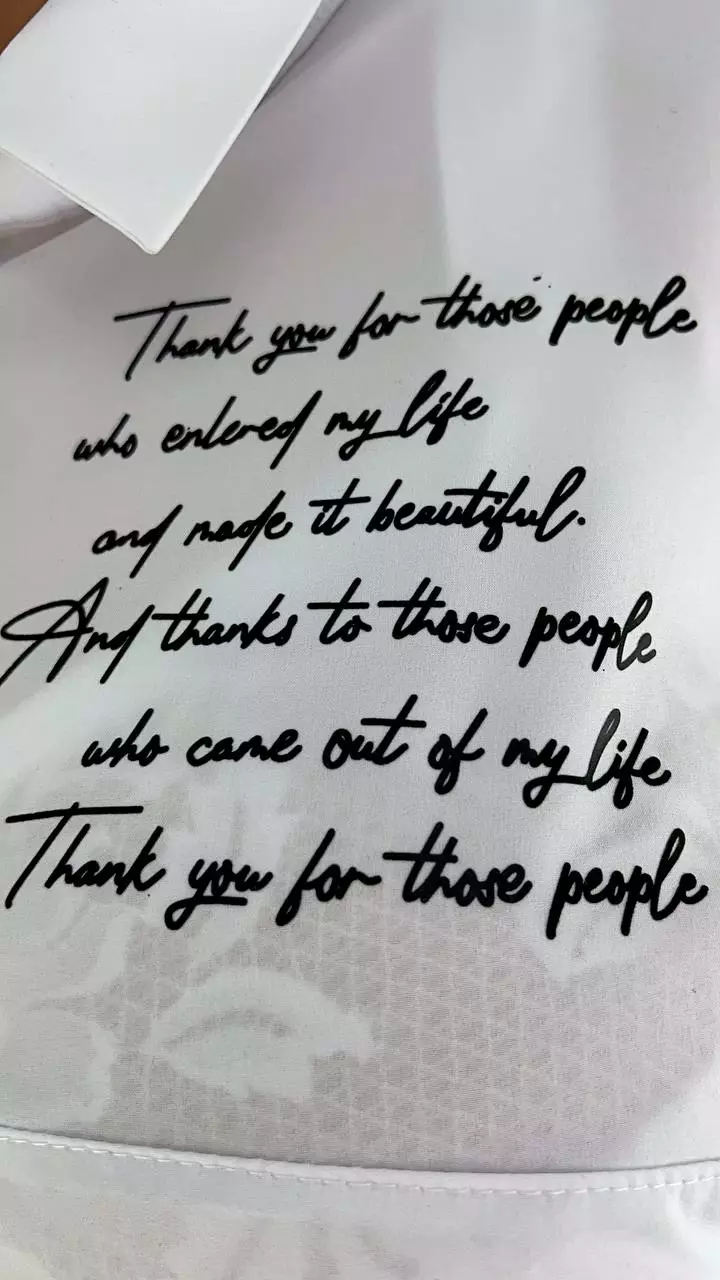 Thank you for those people
who entered my life
and made it beautiful.
And thanks to those people
who came out of my life
Thank you for those people